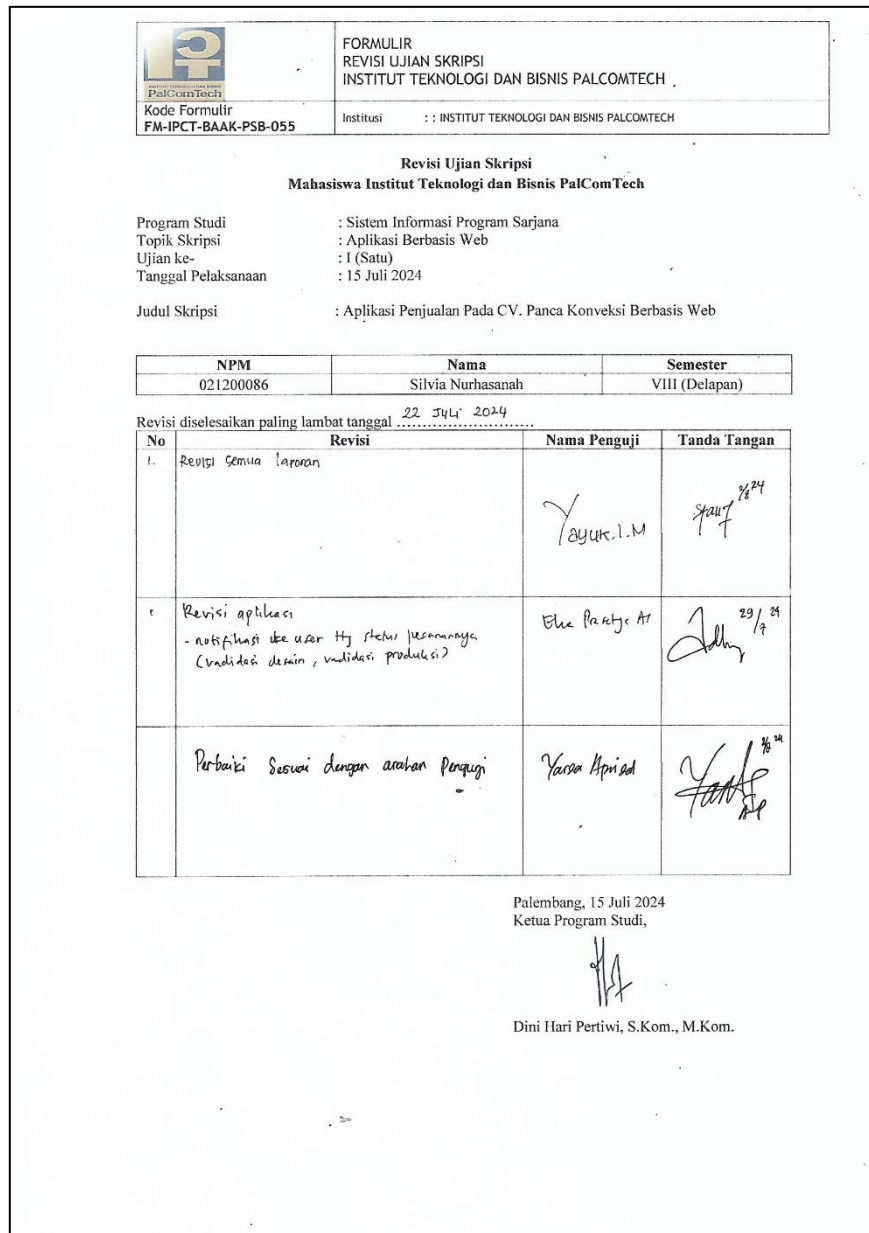 PalComTech
Kode Formulir
FM-IPCT-BAAK-PSB-055
FORMULIR
REVISI UJIAN SKRIPSI
INSTITUT TEKNOLOGI DAN BISNIS PALCOMTECH
Institusi : : INSTITUT TEKNOLOGI DAN BISNIS PALCOMTECH
Revisi Ujian Skripsi
Mahasiswa Institut Teknologi dan Bisnis PalComTech
Program Studi : Sistem Informasi Program Sarjana
Topik Skripsi : Aplikasi Berbasis Web
Ujian ke- : I (Satu)
Tanggal Pelaksanaan : 15 Juli 2024
Judul Skripsi : Aplikasi Penjualan Pada CV. Panca Konveksi Berbasis Web
NPM Nama Semester
021200086 Silvia Nurhasanah VIII (Delapan)
Revisi diselesaikan paling lambat tanggal 22 Juli 2024
No Revisi Nama Penguji Tanda Tangan
1. Revisi semua laporan
Yayuk.I.M
Revisi aplikasi
- notifikasi ke user status pesanannya
(validasi desain, validasi produksi)
29/7 24
Perbaiki Sesuai dengan arahan Penguji
Palembang, 15 Juli 2024
Ketua Program Studi,
Dini Hari Pertiwi, S.Kom., M.Kom.